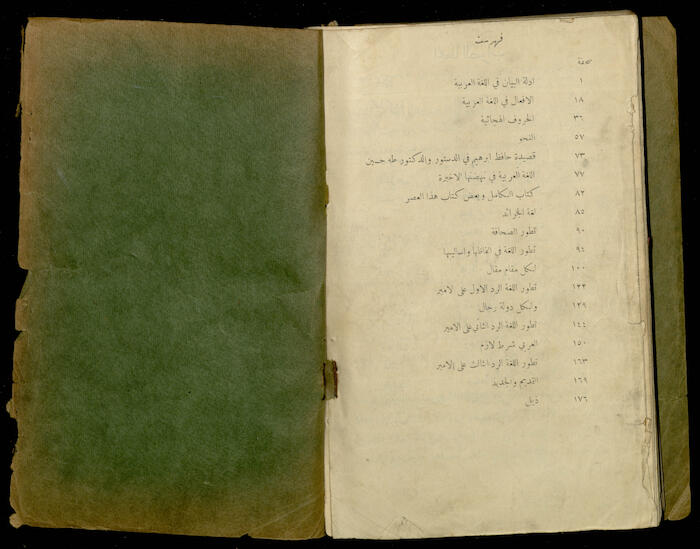 فهرست
صحفة
١ ادلة البيان في اللغة العربية
١٨ الافعال في اللغة العربية
٣٦ الحروف الهجائية
٥٧ النحو
٧٣ قصيدة حافظ ابرهيم في الدستور والدكتور طه حسين
٧٧ اللغة العربية في نهضتها الاخيرة
٨٢ كتاب الكامل وبعض كتاب هذا العصر
٨٥ لغة الجرائد
٩٠ تطور الصحافة
٩٤ تطور اللغة في الفاظها واساليبها
١٠٠ لكل مقام مقال
١٣٣ تطور اللغة الرد الاول على الامير
١٣٩ ولكل دولة رجال
١٤٤ تطور اللغة الرد الثاني على الامير
١٥٠ العربي شرط لازم
١٦٣ تطور اللغة الرد الثالث على الامير
١٦٩ القديم والجديد
١٧٦ ذيل